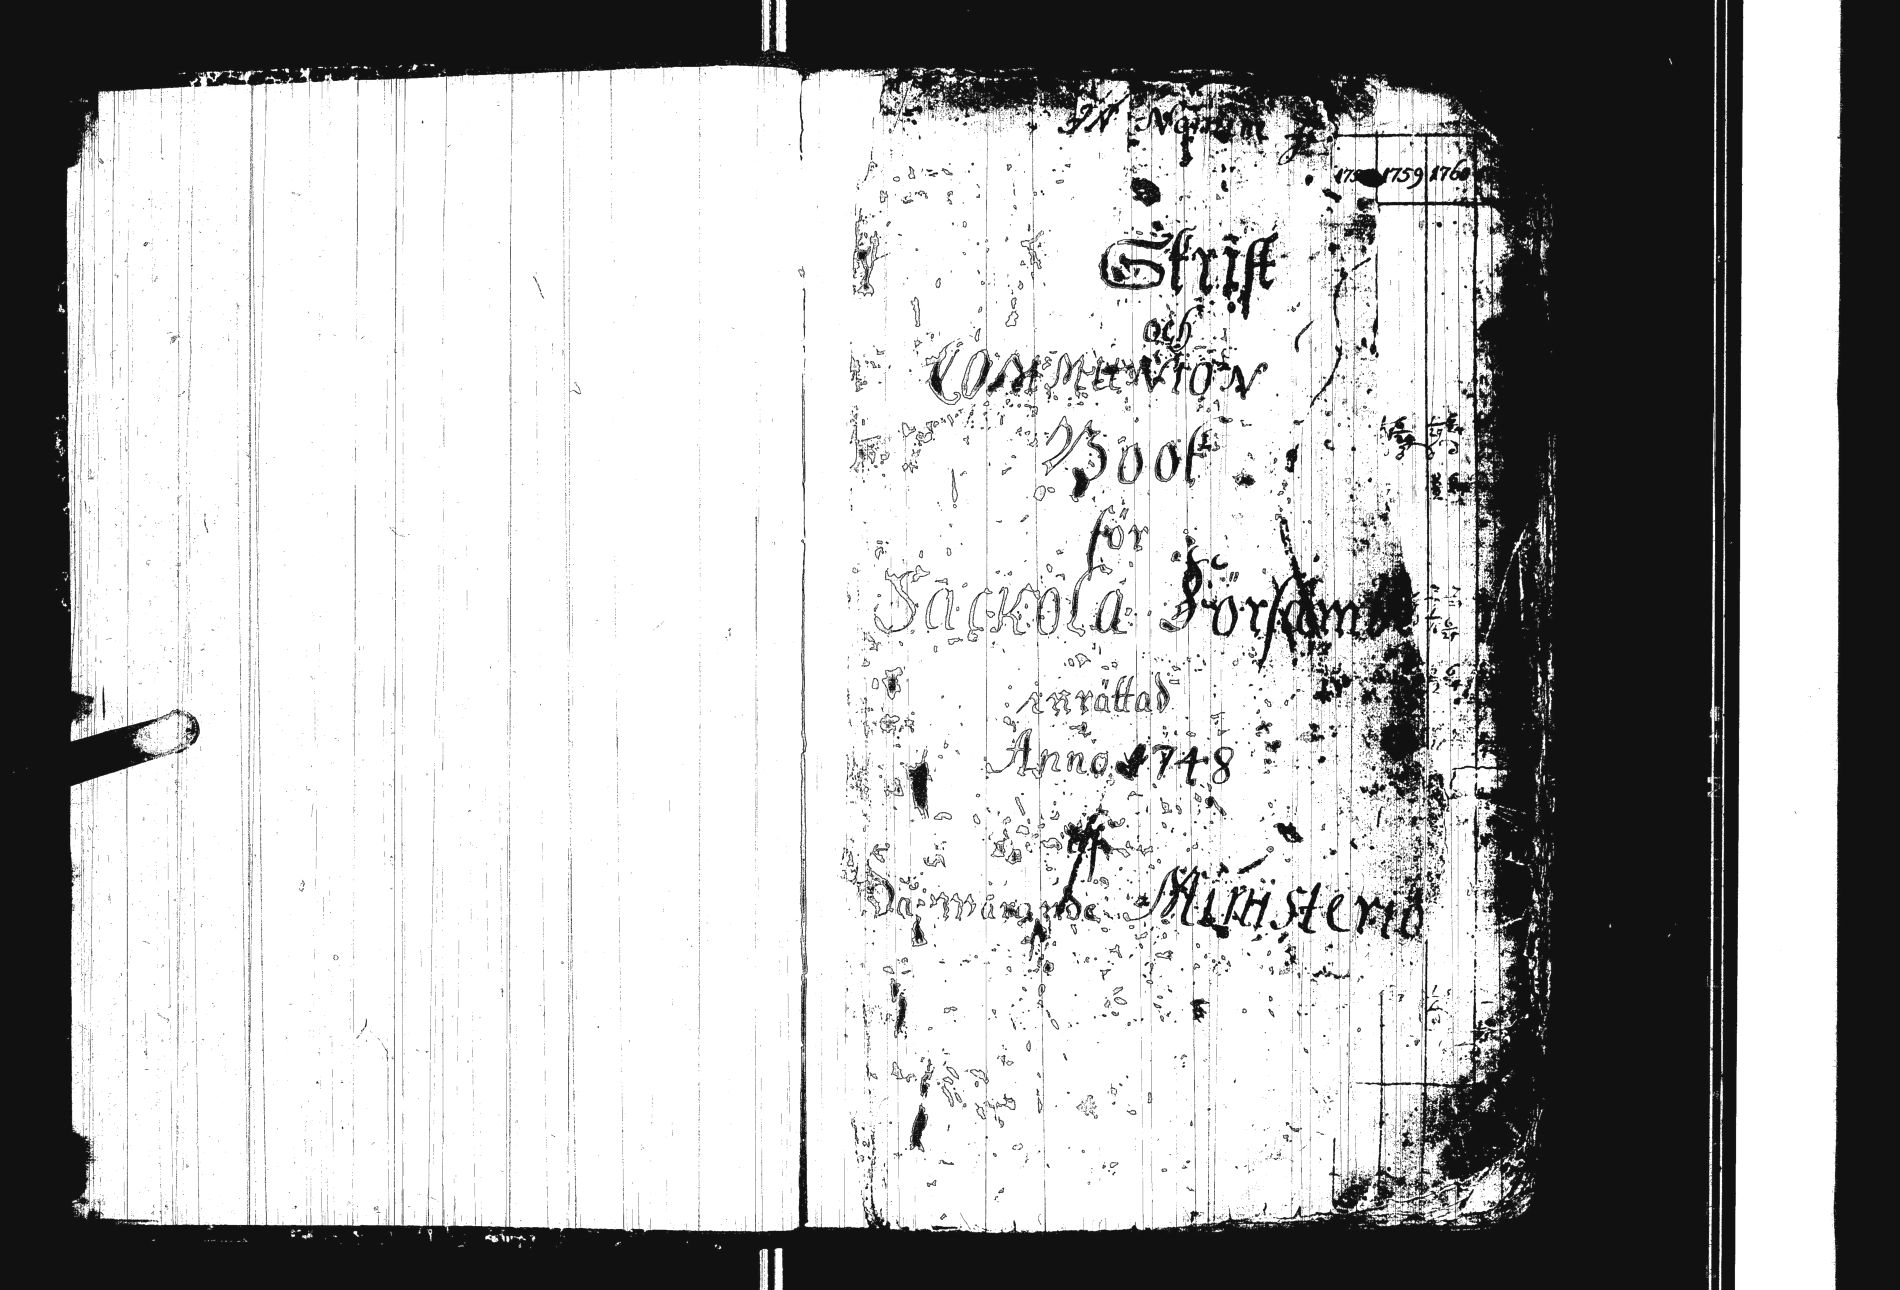 IN Nomine J
1758 1759 1760
Skrift
och
COMMUNION
Book
för
Säckola Försambl
inrättad
Anno 1748
af
Då warande Ministerio